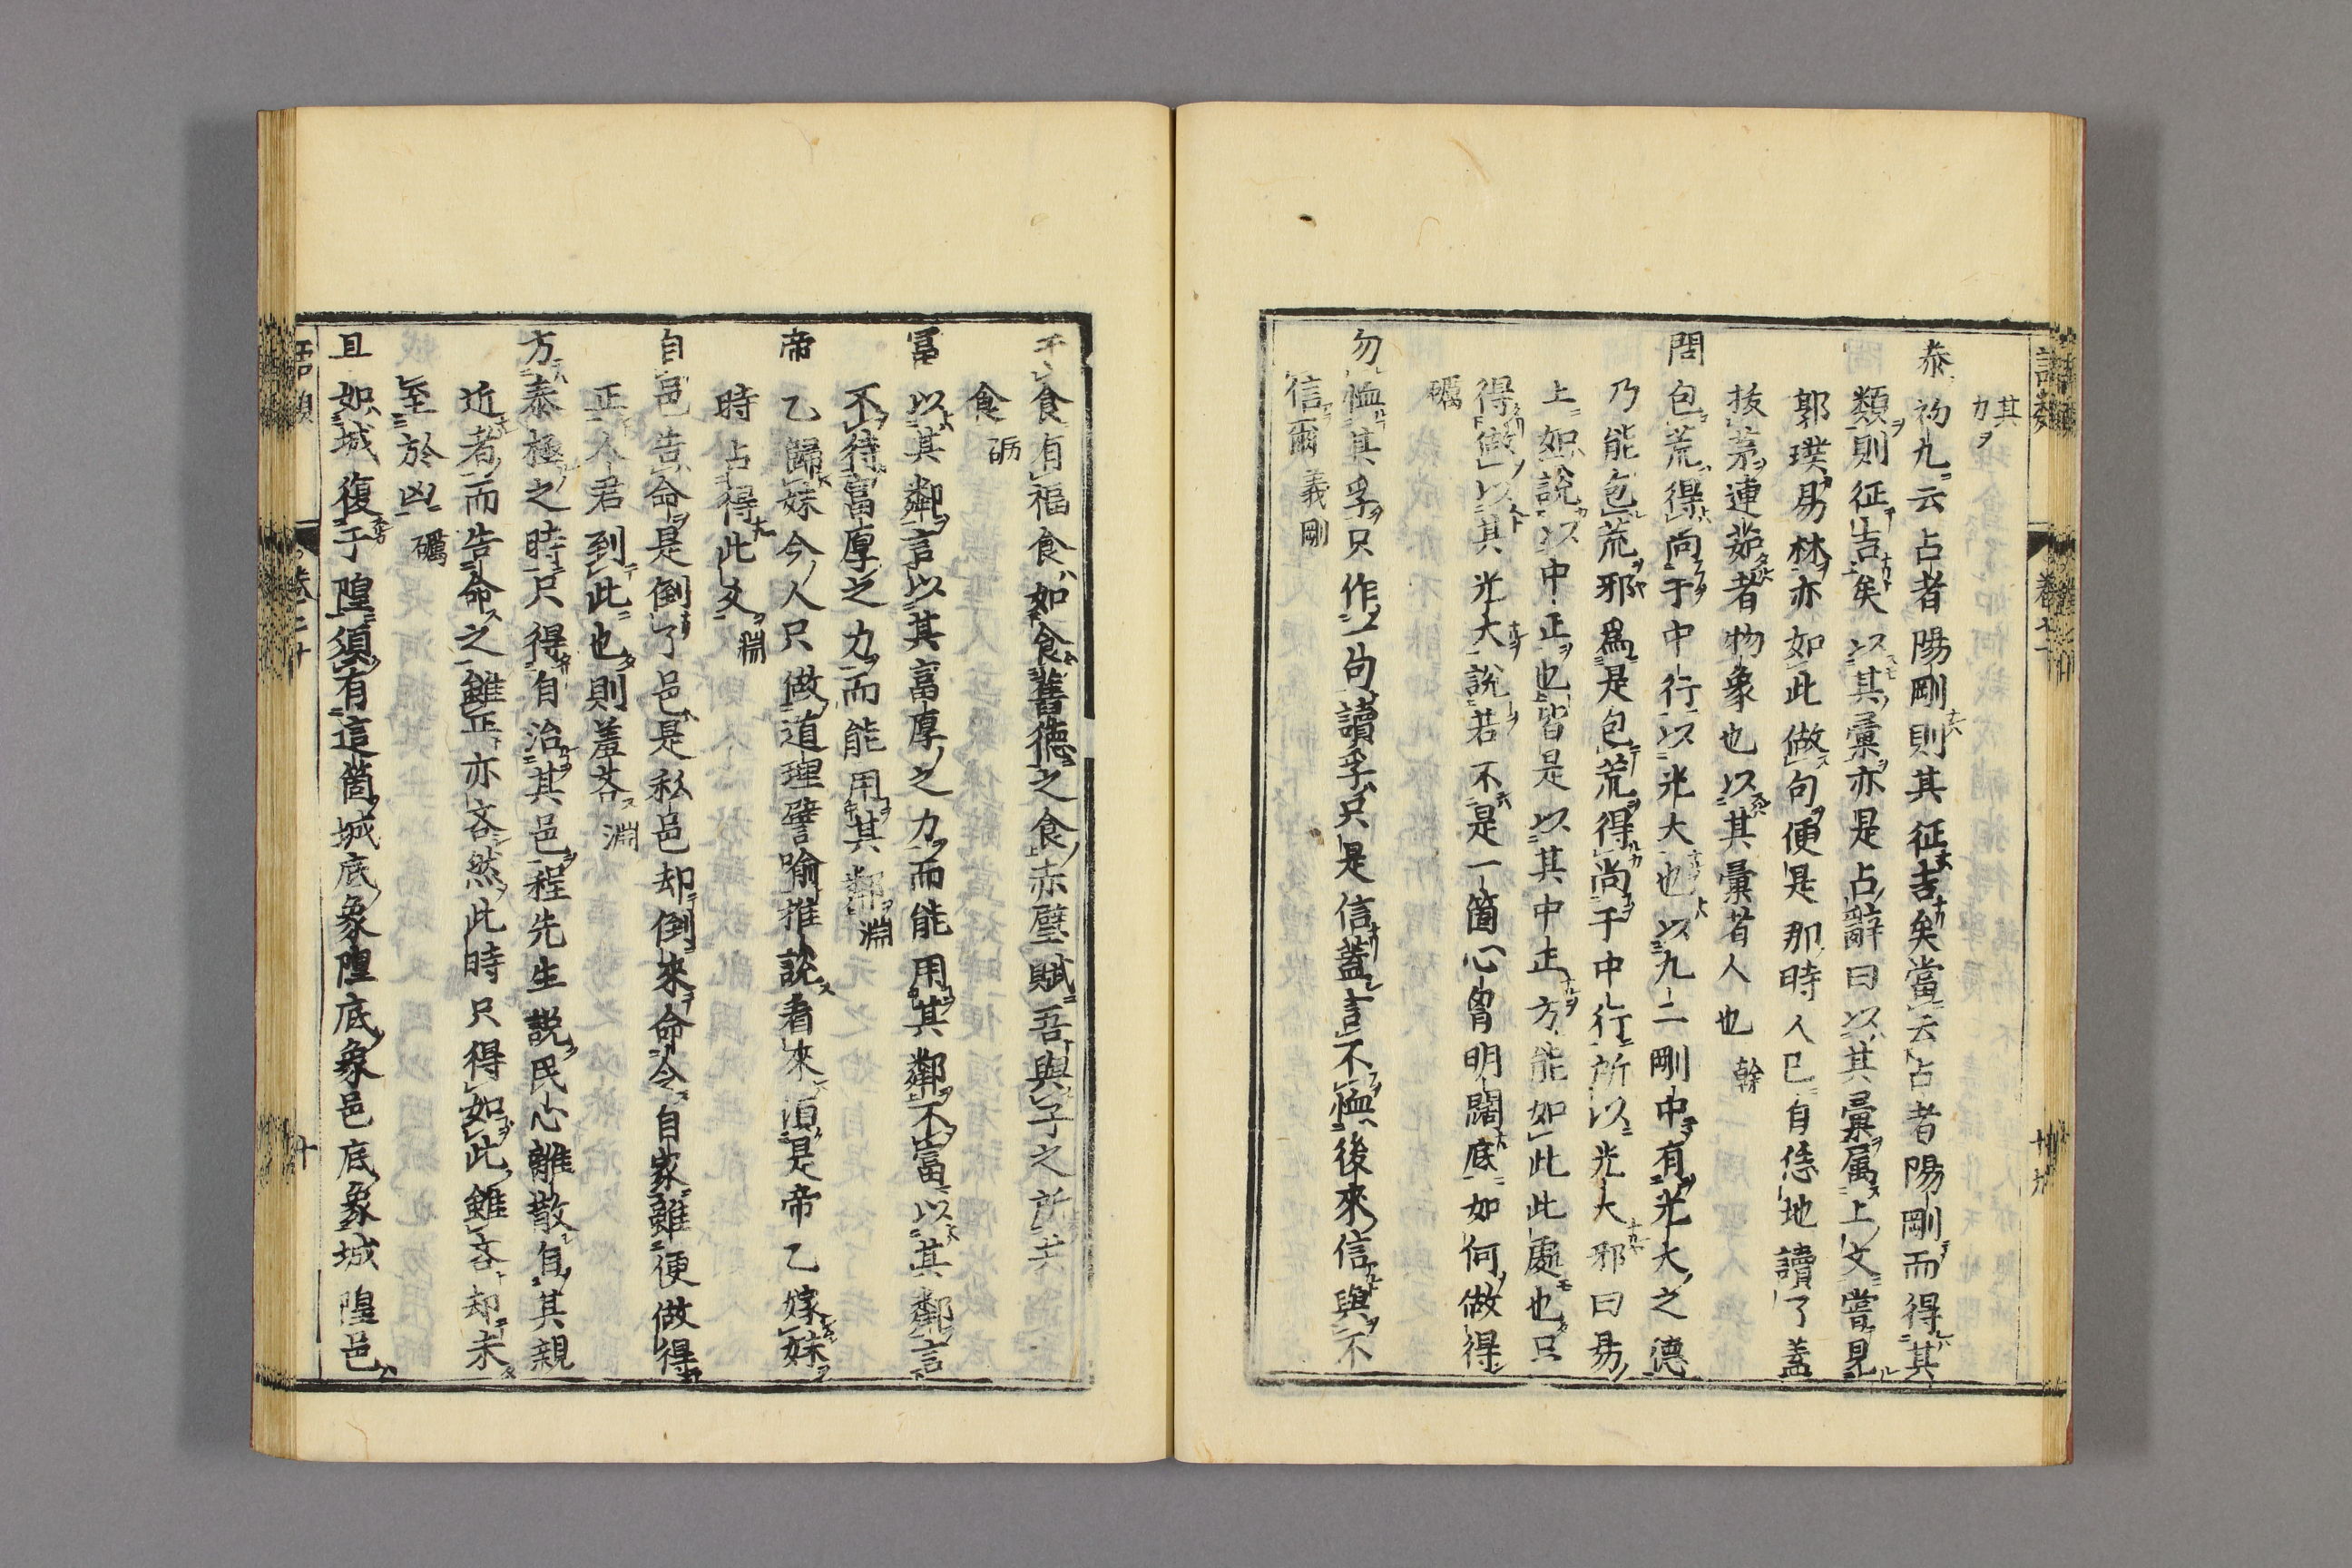 語類
卷七十
十九
其
力
泰初九云占者陽剛則其征吉矣當云占者陽剛而得其
類則征吉矣以其彙亦是占辭曰以其彙属上文嘗見
郭璞易林亦如此做句便是那時人已自恁地讀了蓋
拔茅連茹者物象也以其彙者人也 榦
問包荒得尚于中行以光大也以九二剛中有光大之德
乃能包荒邪爲是包荒得尚于中行所以光大邪曰易
上如說以中正也皆是以其中正方能如此此處也只
得做以其光大說若不是一箇心胷明闊底如何做得
礪
勿恤其孚只作一句讀孚只是信蓋言不恤後來信與不
信爾 義剛
于食有福食如食舊德之食赤壁賦吾與子之所共
食 砺
富以其鄰言以其富厚之力而能用其鄰不富以其鄰言
不待富厚之力而能用其鄰 淵
帝乙歸妹今人只做道理譬喻推說看來須是帝乙嫁妹
時占得此爻 淵
自邑告命是倒了邑是私邑却倒來命令自家雖便做得
正人君到此也則羞吝 淵
方泰極之時只得自治其邑程先生說民心離散自其親
近者而告命之雖正亦吝然此時只得如此雖吝却未
至於凶 礪
且如城復于隍須有這箇城底象隍底象邑底象城隍邑
語類
卷七十